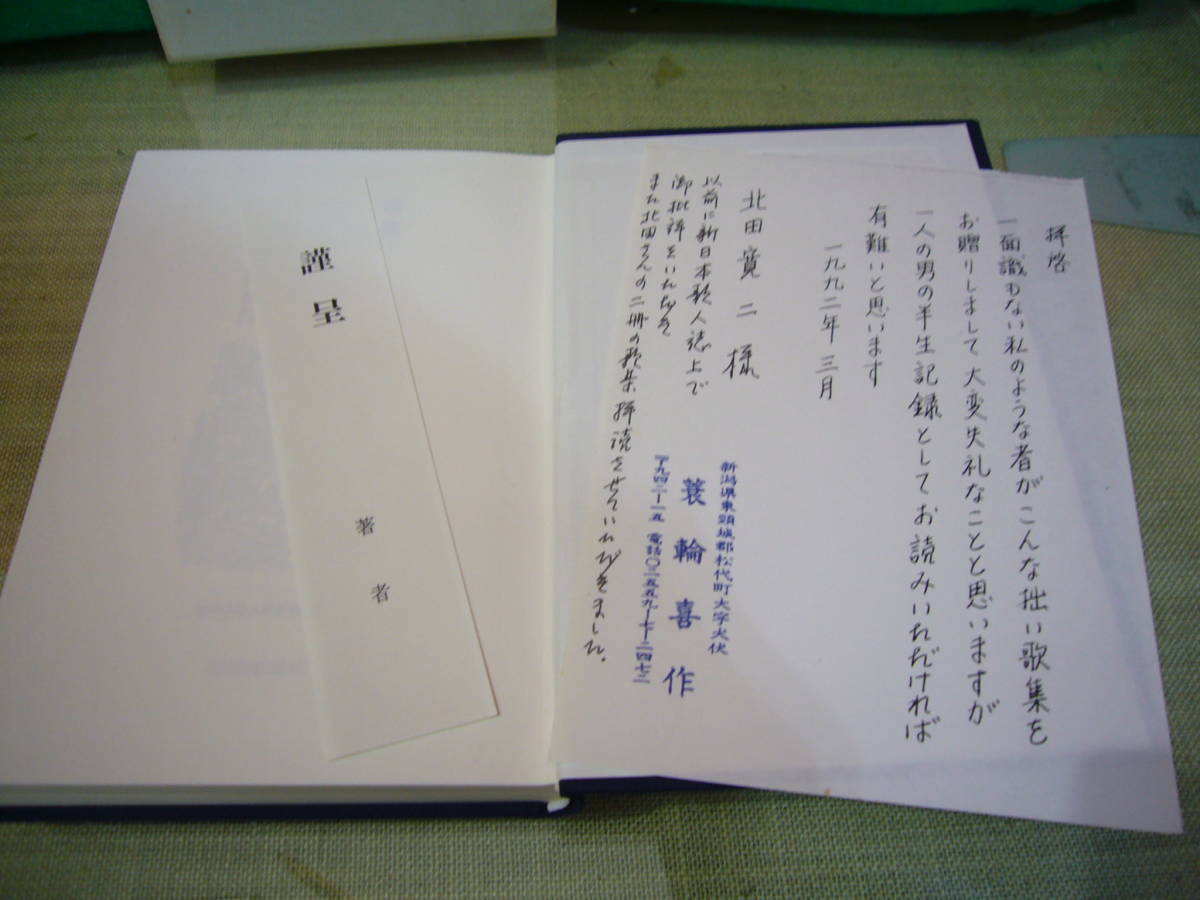 拝啓
一面識もない私のような者がこんな拙い歌集を
お贈りしまして大変失礼なことと思いますが
一人の男の半生記録としてお読みいただければ
有難いと思います
一九九二年 三月
北田寛二様
新潟県東頸城郡松代町大字犬伏
蓑輪喜作
〒九四二ー一五 電話〇二五五九ー七ー二四七二
以前に新日本歌人誌上で
御批評をいただき
また北田さんの二冊の歌集拝読させていただきました。
謹呈
著者